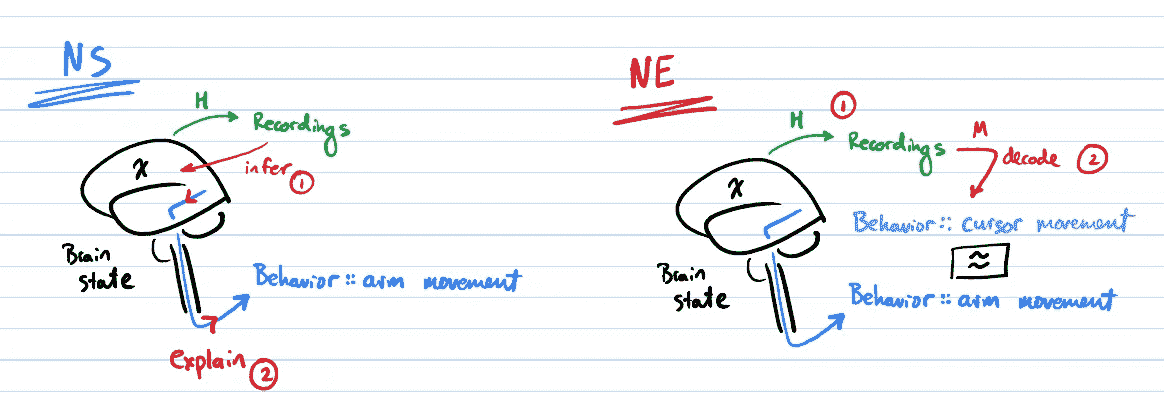 NS
H
Recordings
x
infer ①
Brain
state
Behavior :: arm movement
explain ②
NE
H ①
Recordings
M
decode ②
x
Behavior :: cursor movement
≈
Brain
state
Behavior :: arm movement